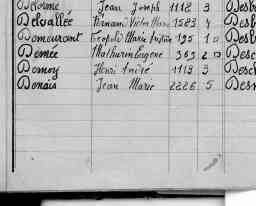 Delorme Jean Joseph 1112 3 Desb
Delvallée Fernand Victor Marie 1523 4 Desb
Demeurant Léopold Marie 195 1 Desb
Demée Mathurin Eugène 363 2 Desc
Demoy Henri André 1113 3 Desc
Denais Jean Marie 2226 5 Desn